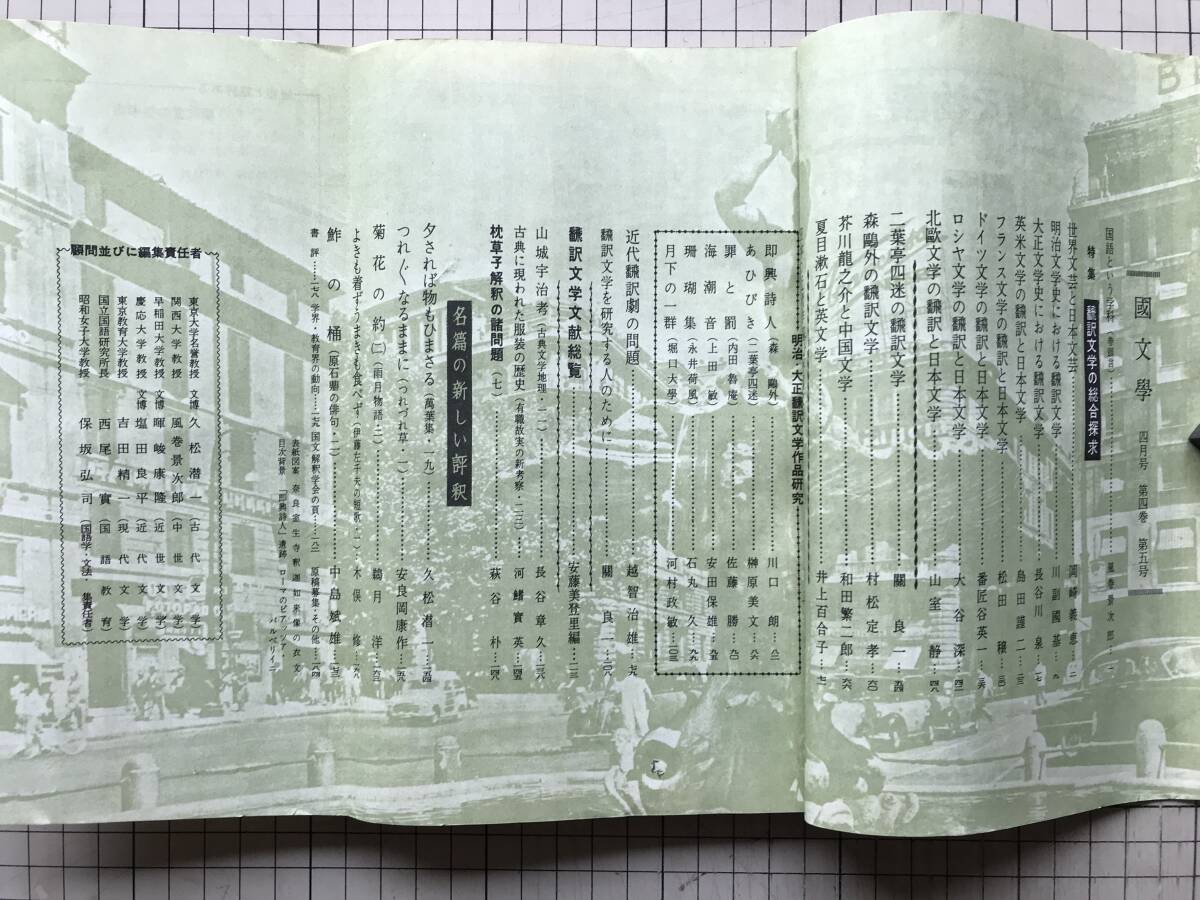 國文學 四月号 第四巻 第五号
国語という学科（巻頭言）……風巻景次郎…一
特集 飜訳文学の総合探求
世界文芸と日本文芸……岡崎義恵…二
明治文学史における飜訳文学……川副國基…九
大正文学史における飜訳文学……長谷川泉…一七
英米文学の飜訳と日本文学……島田謹二…二三
フランス文学の飜訳と日本文学……松田穣…三〇
ドイツ文学の飜訳と日本文学……番匠谷英一…三六
ロシヤ文学の飜訳と日本文学……大谷深…四二
北歐文学の飜訳と日本文学……山室静…四八
二葉亭四迷の飜訳文学……關良一…五四
森鷗外の飜訳文学……村松定孝…六〇
芥川龍之介と中国文学……和田繁二郎…六六
夏目漱石と英文学……井上百合子…七二
明治・大正飜訳文学作品研究
即興詩人（森鷗外）……川口朗…八二
あひびき（二葉亭四迷）……榊原美文…八六
罪と罰（内田魯庵）……佐藤勝…九〇
海潮音（上田敏）……安田保雄…九五
珊瑚集（永井荷風）……石丸久…九九
月下の一群（堀口大學）……河村政敏…一〇三
近代飜訳劇の問題……越智治雄…七九
飜訳文学を研究する人のために……關良一…一〇八
飜訳文学文献総覧……安藤美登里編…一一三
山城宇治考（古典文学地理・二）……長谷章久…一三六
古典に現われた服装の歴史（有職故実の新考察・二三）……河鰭實英…一四五
枕草子解釈の諸問題（七）……萩谷朴…一四九
名篇の新しい評釈
夕されば物もひまさる（萬葉集・一九）……久松潜一…一五四
つれ〴〵なるままに（つれづれ草一）……安良岡康作…一五九
菊花の約（二）（雨月物語・三）……鵜月洋…一六二
よきも着ずうまきも食べず（伊藤左千夫の短歌・一）……木俣修…一六八
鮓の桶（原石鼎の俳句・二）……中島斌雄…一七三
書評……一七八 学界・教育界の動向……一七九 国文解釈学会の頁……一八二 原稿募集・その他……一八四
表紙図案 奈良室生寺釈迦如来像の衣文
目次背景 「即興詩人」遺跡 ローマのピアッツァ・バルベリイニ
顧問並びに編集責任者
東京大学名誉教授 文博 久松潜一（古代文学）
関西大学教授 風巻景次郎（中世文学）
早稲田大学教授 文博 暉峻康隆（近世文学）
慶応大学教授 文博 塩田良平（近代文学）
東京教育大学教授 吉田精一（現代文学）
国立国語研究所長 西尾實（国語教育）
昭和女子大学教授 保坂弘司（国語学・文法 集責任者）